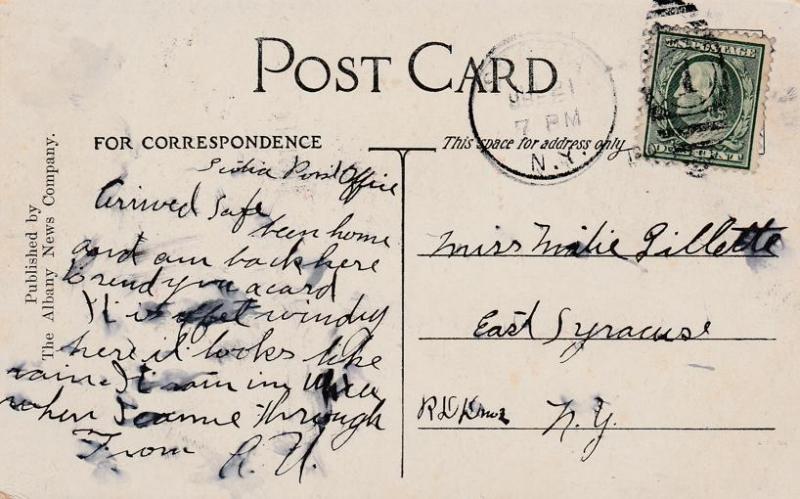 POST CARD
FOR CORRESPONDENCE
This space for address only
Published by
The Albany News Company.
U.S. POSTAGE
21
7 PM
N.Y.
Scotia Post Office
Arived Safe
been home
and am back here
to send you a card
It is windy
here it looks like
rain. It rain in Utica
when I came through
From
Miss Millie Gillette
East Syracuse
N.Y.